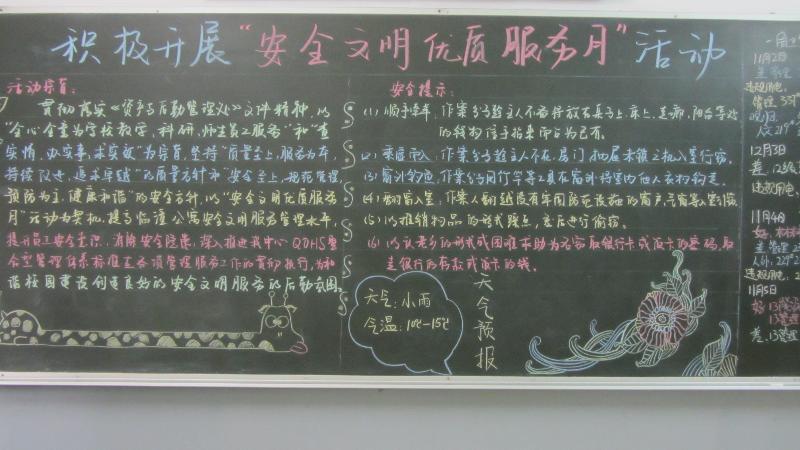 积极开展“安全文明优质服务月”活动
活动宗旨:
贯彻落实《资产与后勤管理处》文件精神,以
“全心全意为学校教学、科研、师生员工服务”和“重
实情、办实事、求实效”为宗旨,坚持“质量至上,服务为本,
持续改进,追求卓越”的质量方针和“安全至上,规范管理,
预防为主,健康和谐”的安全方针,以“安全文明优质服务
月”活动为契机,提高临潼公寓安全文明服务管理水平,
提升员工安全意识,消除安全隐患,深入推进我中心QOHS整
合型管理体系标准至各项管理服务工作的贯彻执行,为和
谐校园建设创造良好的安全文明服务的后勤氛围。
安全提示:
(1)顺手牵羊,作案分子趁主人不备将放在桌子上、床上、走廊、阳台等处
的钱物信手拈来而占为己有。
(2)乘虚而入,作案分子趁主人不在,房门抽屉未锁之机入室行窃。
(3)窗外钓鱼,作案分子用竹竿等工具在窗外将室内他人衣物钩走。
(4)翻窗入室,作案人翻越没有牢固防范设施的窗户、气窗等入室行窃
(5)以推销物品的形式踩点,然后进行偷窃。
(6)以认老乡的形式或困难求助为名窃取银行卡或饭卡的密码,取
走银行的存款或饭卡的钱。
天气:小雨
气温:10℃-15℃
天气预报
11月2日
违规用电
12月3日
违规用电
11月4日
违规用电
11月5日